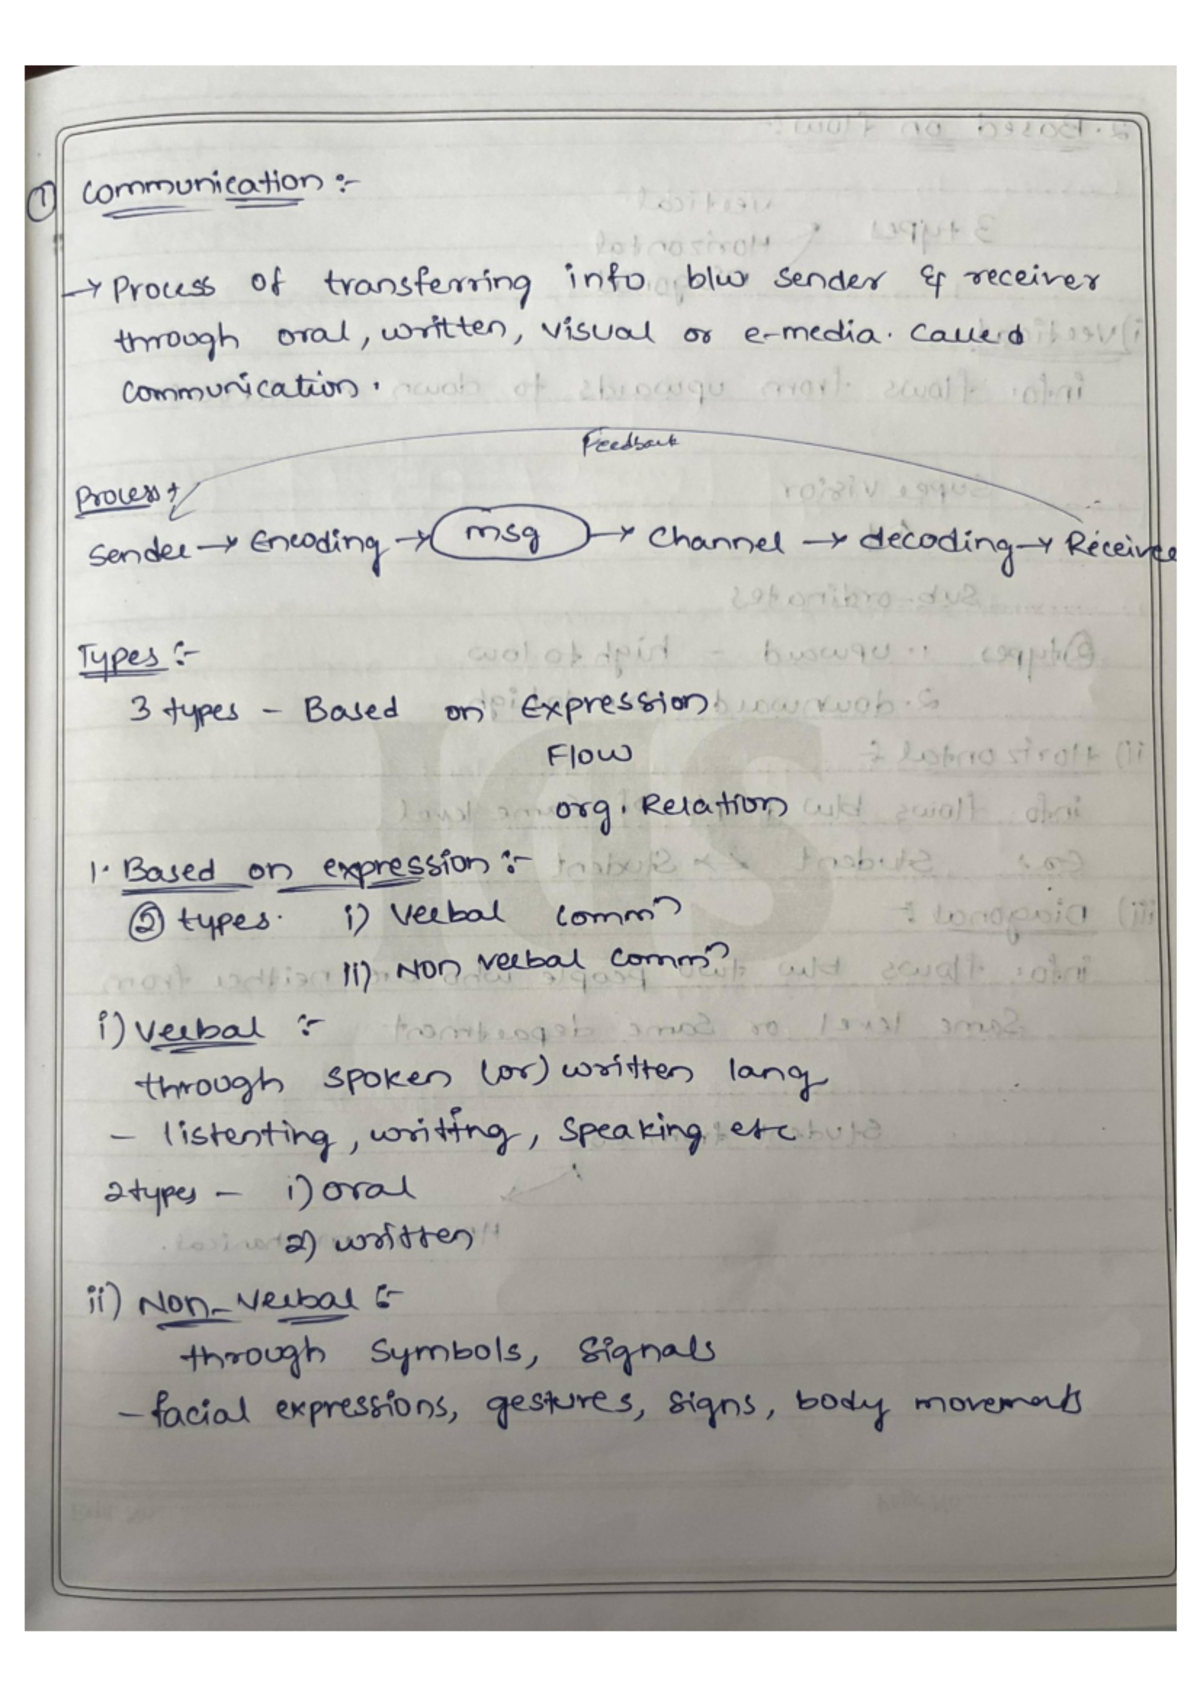 ① Communication :-
→ Process of transferring info b/w sender & receiver
through oral, written, visual or e-media. Called
communication.
Feedback
Process :-
Sender → Encoding → msg → Channel → decoding → Receiver
Types :-
3 types - Based on Expression
Flow
org. Relation
1. Based on expression :-
② types. i) Verbal commⁿ
ii) Non verbal commⁿ
i) Verbal :-
through spoken (or) written lang
- listenting, writing, speaking etc
2 types - i) oral
2) written
ii) Non-Verbal :-
through symbols, signals
- facial expressions, gestures, signs, body movements